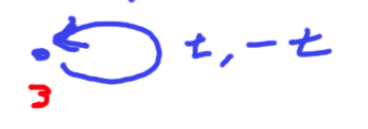 t, -t
3